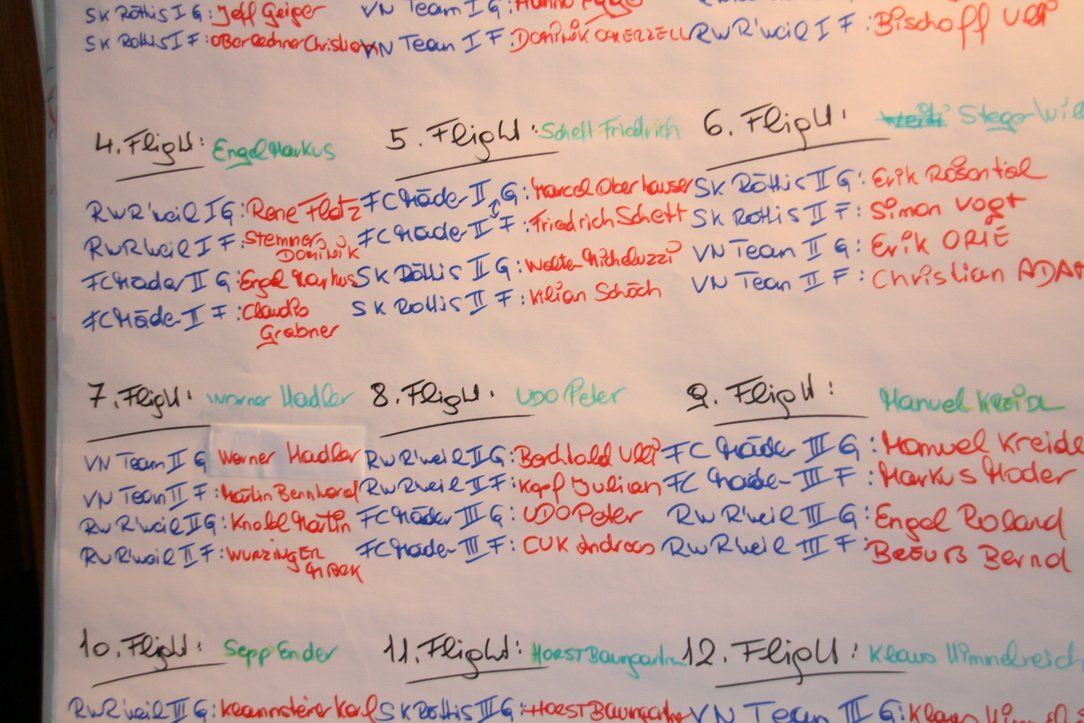 SK Röthis I G: Jeff Geiger
SK Röthis I F: Oberlechner Christian
VN Team I G:
VN Team I F: DOMINIK
RWR'weil I F: Bischoff Uli
4. Flight: Engel Markus
RWR'weil I G: Rene Flatz
RWR'weil I F: Stemmer
DOMINIK
FC Mäder II G: Engel Markus
FC Mäder II F: Claudio
Grabner
5. Flight: Schett Friedrich
FC Mäder II G: Marcel Oberhauser
FC Mäder II F: Friedrich Schett
SK Röthis II G: Walter Micheluzzi
SK Röthis II F: Kilian Schöch
6. Flight: Steger
SK Röthis II G: Erik Rosentiel
SK Röthis II F: Simon Vogt
VN Team II G: Erik ORIE
VN Team II F: Christian ADAM
7. Flight: Werner Hadler
VN Team II G Werner Hadler
VN Team II F: Martin Bernhard
RWR'weil II G: Knobel Martin
RWR'weil II F: WURZINGER
8. Flight: UDO Peter
RWR'weil II G: Berchtold Uli
RWR'weil II F: Kopf Julian
FC Mäder III G: UDO Peter
FC Mäder III F: CUK Andreas
9. Flight: Manuel KREIDL
FC Mäder III G: Manuel Kreidl
FC Mäder III F: Markus Mader
RWR'weil III G: Engel Roland
RWR'weil III F: Bernd
10. Flight: Sepp Ender
RWR'weil III G: Karl
11. Flight: HORST Baumgarten
SK Röthis III G: HORST Baumgarten
12. Flight: Klaus Himmelreich
VN Team III G: Klaus